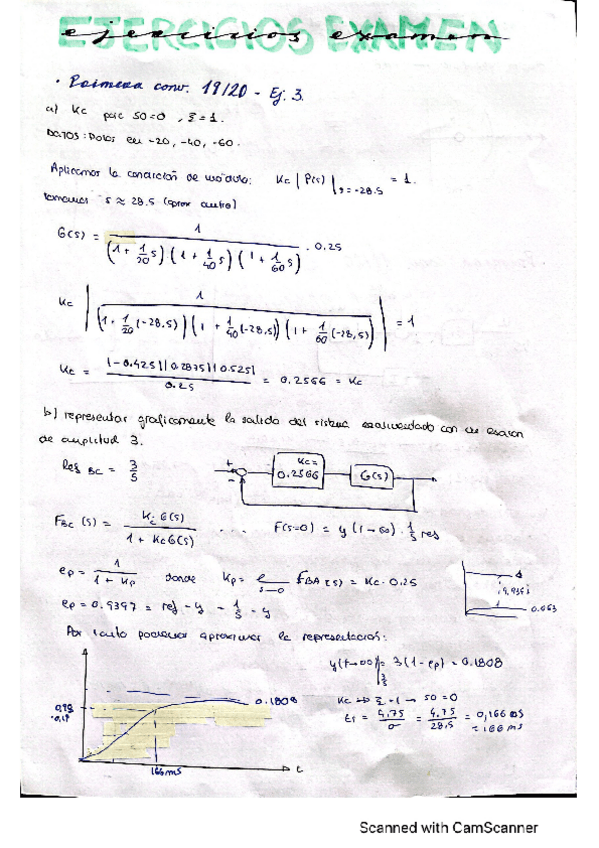 EJERCICIOS EXAMEN
ejercicios examen
· Primera conv. 19/20 - Ej. 3.
a) Kc para SO=0 , ξ=1.
DATOS: Polos en -20, -40, -60.
Aplicamos la condición de módulo: Kc | P(s) |s=-28.5 = 1.
tomamos s ≈ 28.5 (aprox centro)
G(s) = 1 / (1 + 1/20 s) (1 + 1/40 s) (1 + 1/60 s) · 0.25
Kc | 1 / (1 + 1/20 (-28.5)) (1 + 1/40 (-28.5)) (1 + 1/60 (-28,5)) | = 1
Kc = |-0.425||0.2875||0.525| / 0.25 = 0.2566 = Kc
b) representar graficamente la salida del sistema realimentado con un escalón
de amplitud 3.
Ref BC = 3/s
+
-
Kc=
0.2566
G(s)
FBC (s) = Kc G(s) / 1 + KcG(s) ... F(s=0) = y(t→∞) · 1/3 ref
ep = 1 / 1 + Kp donde Kp = s→0 FBA(s) = Kc · 0.25
ep = 0.9397 = ref - y - 1/3 - y
0.063
Por tanto podemos aproximar la representación:
y(t→∞) = 3(1-ep) = 0.1808
Kc → ξ=1 → SO=0
ts = 4.75 / σ = 4.75 / 28.5 = 0,166 ms
= 166 ms
0.1808
166ms
t
Scanned with CamScanner